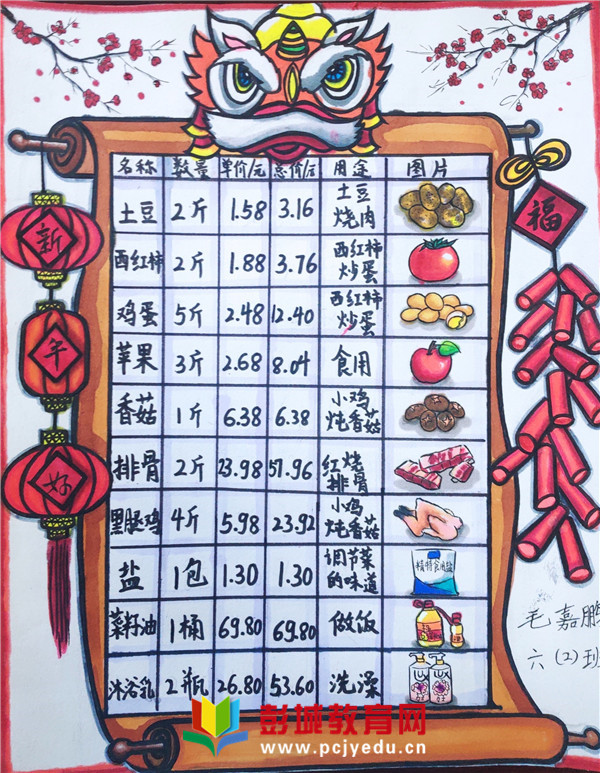 名称 数量 单价/元 总价/元 用途 图片
土豆 2斤 1.58 3.16 土豆烧肉
西红柿 2斤 1.88 3.76 西红柿炒蛋
鸡蛋 5斤 2.48 12.40 西红柿炒蛋
苹果 3斤 2.68 8.04 食用
香菇 1斤 6.38 6.38 小鸡炖香菇
排骨 2斤 23.98 57.96 红烧排骨
黑腿鸡 4斤 5.98 23.92 小鸡炖香菇
盐 1包 1.30 1.30 调节菜的味道
菜籽油 1桶 69.80 69.80 做饭
沐浴乳 2瓶 26.80 53.60 洗澡
新
年
好
福
毛嘉鹏
六(2)班
彭城教育网
www.pcjyedu.cn